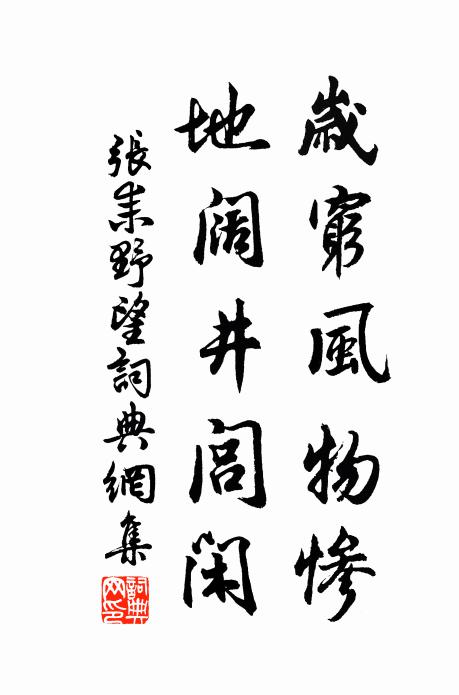 歲窮風物慘
地闊井閭閑
張耒野望詞典網集
詞典網印